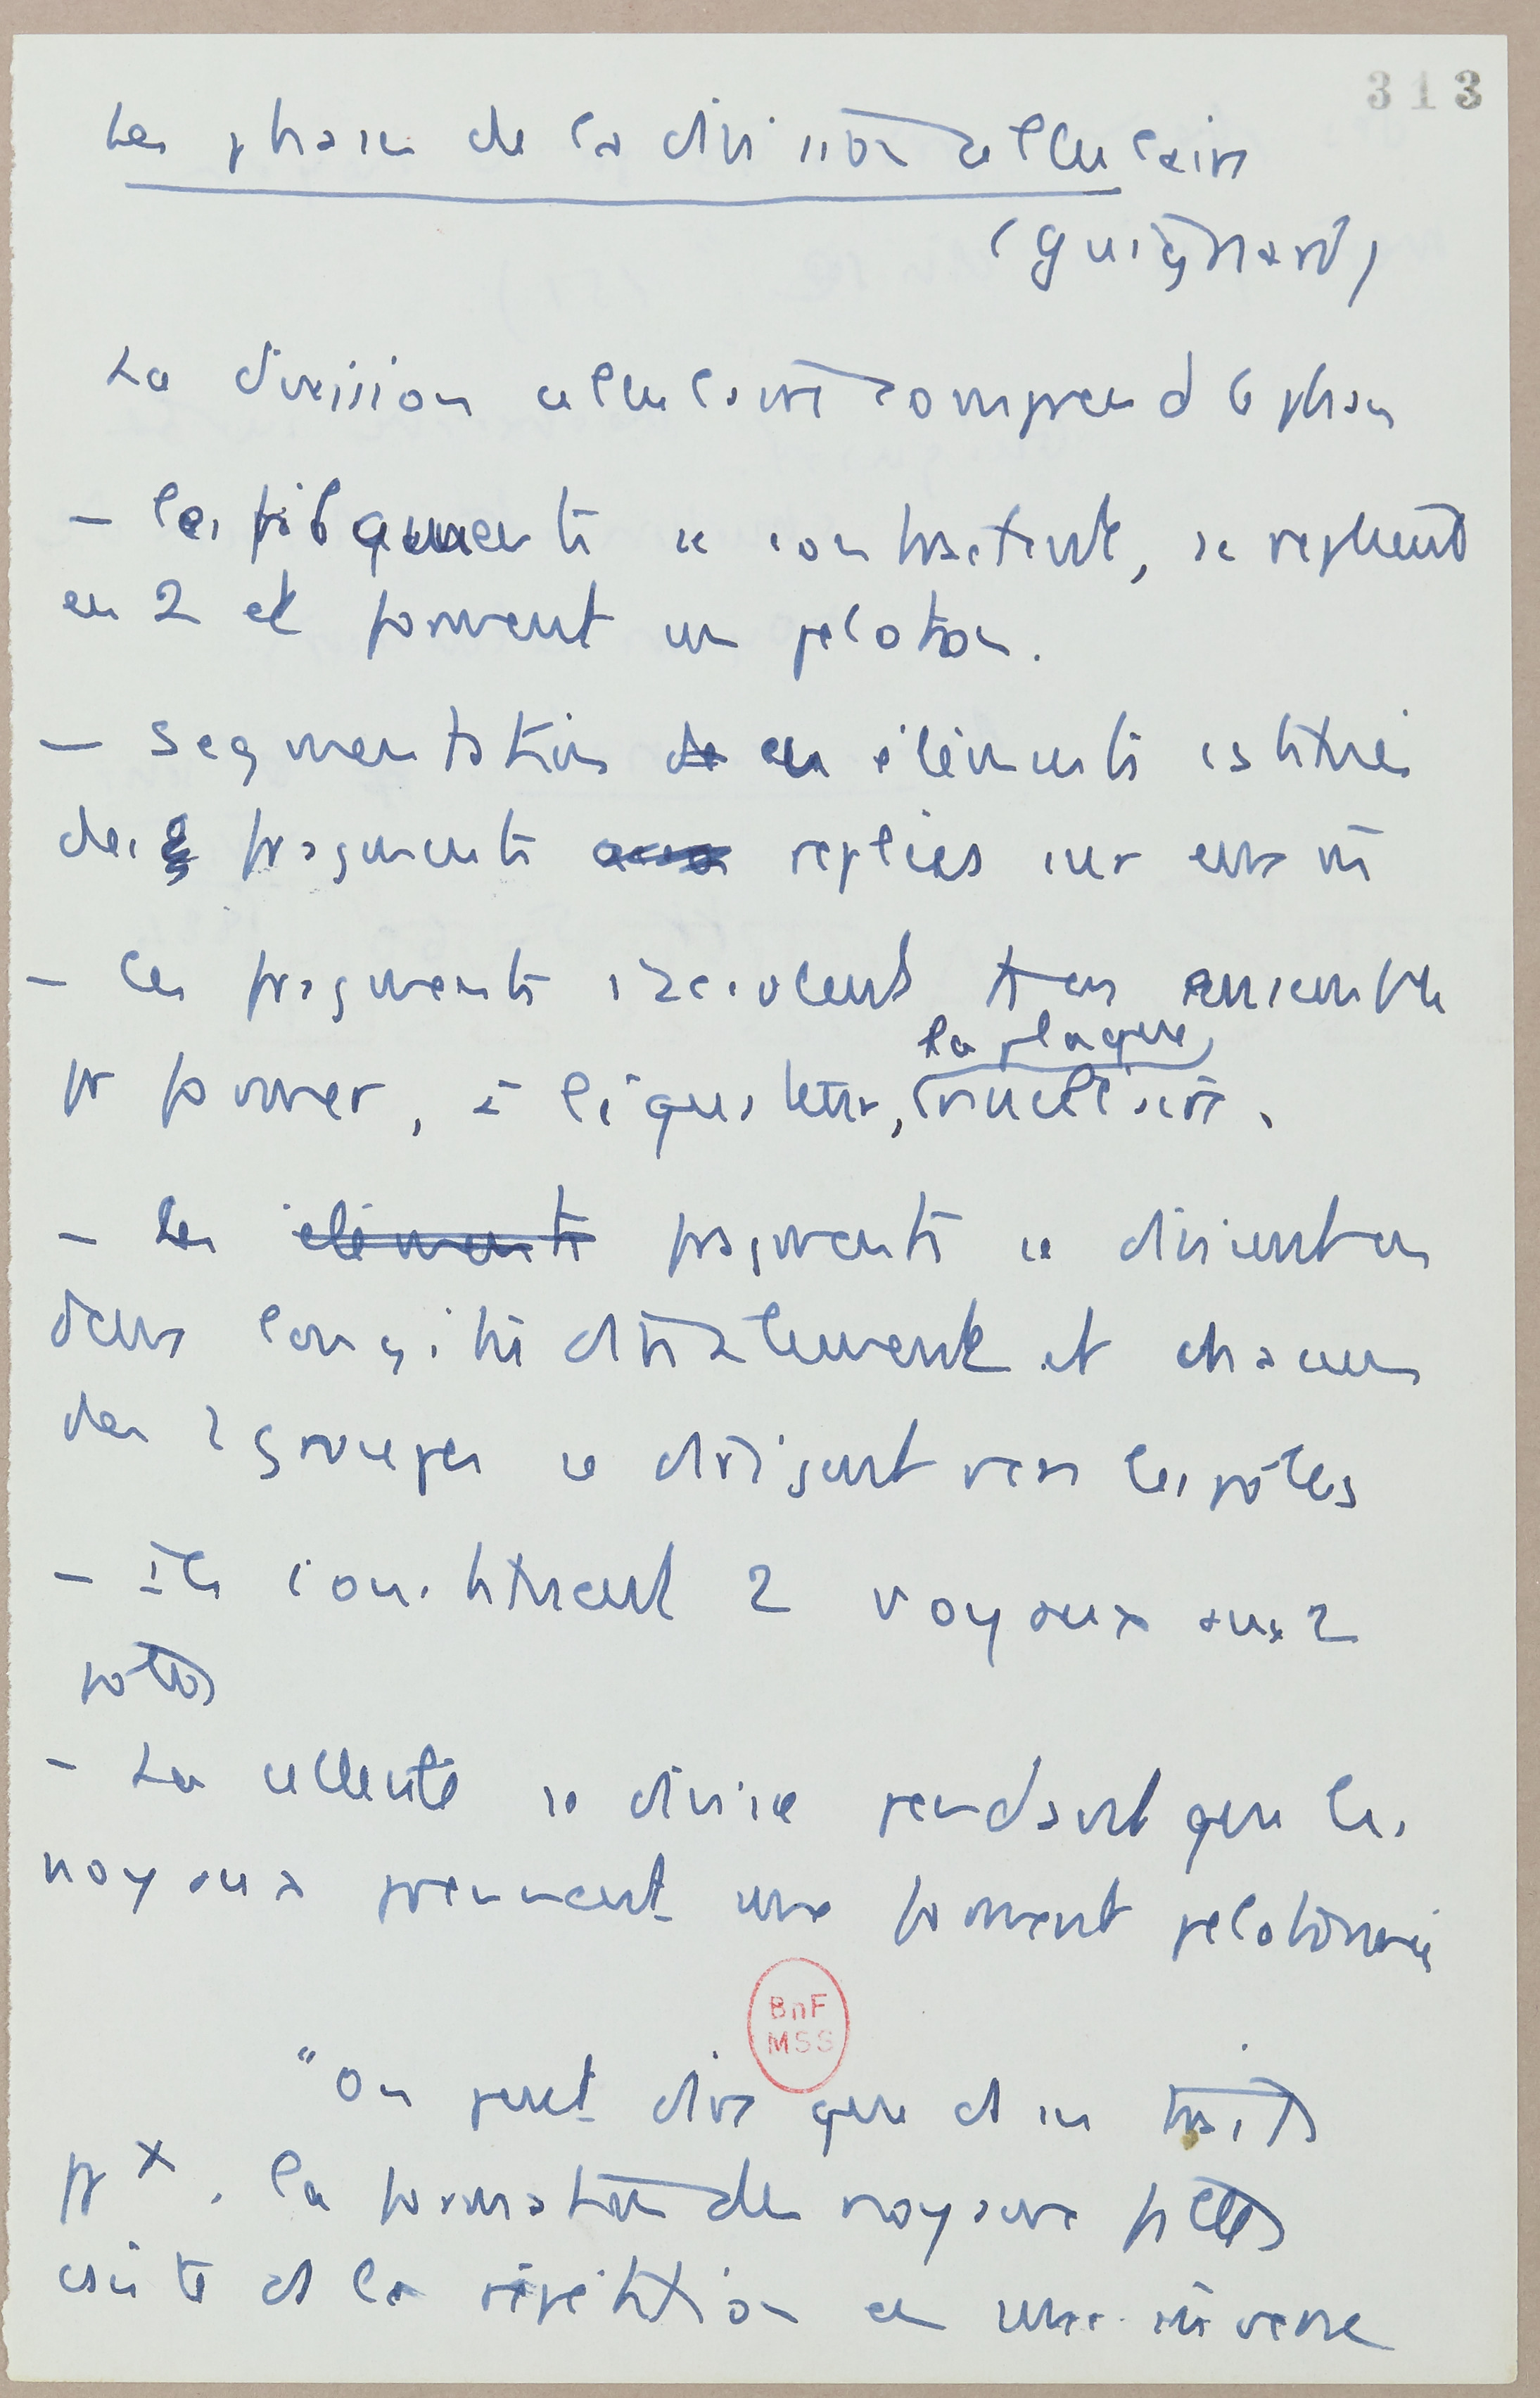 313
Les phases de la division cellulaire
(Guignard)
La division cellulaire comprend 6 phases
- les filaments se contractent, se replient
en 2 et forment un peloton.
- segmentation de en éléments
des fragments repliés sur eux m
- les fragments ensemble
pr former, à l'équateur, la plaque nucléaire.
- Les éléments fragments se divisent en
deux longitudinalement et chacun
des 2 groupes se dirigent vers les pôles
- Ils constituent 2 noyaux aux 2
pôles
- La cellule se divise pendant que les
noyaux prennent une forment pelotonnée
BnF
MSS
"On peut dire que ds ses traits
px. la formation des noyaux filles
consiste ds la répétition en sens inverse